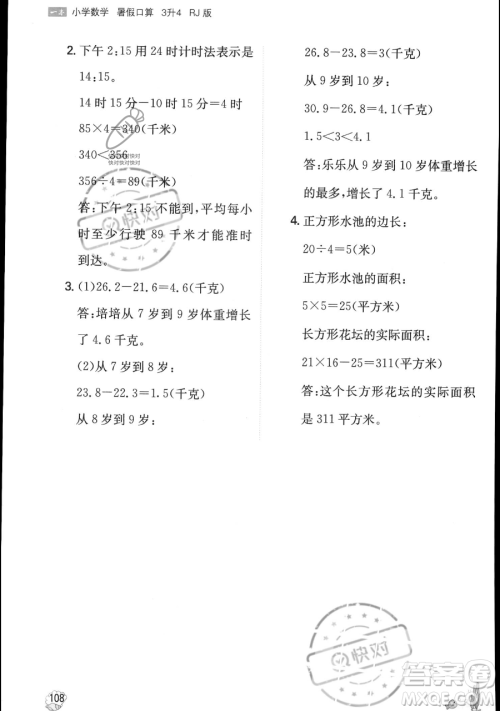 一本 小学数学 暑假口算 3升4 RJ版
2. 下午2:15用24时计时法表示是
14:15。
14时15分-10时15分=4时
85×4=340(千米)
340<356
356÷4=89(千米)
答:下午2:15不能到,平均每小
时至少行驶89千米才能准时
到达。
3. (1)26.2-21.6=4.6(千克)
答:培培从7岁到9岁体重增长
了4.6千克。
(2)从7岁到8岁:
23.8-22.3=1.5(千克)
从8岁到9岁:
26.8-23.8=3(千克)
从9岁到10岁:
30.9-26.8=4.1(千克)
1.5<3<4.1
答:乐乐从9岁到10岁体重增长
的最多,增长了4.1千克。
4. 正方形水池的边长:
20÷4=5(米)
正方形水池的面积:
5×5=25(平方米)
长方形花坛的实际面积:
21×16-25=311(平方米)
答:这个长方形花坛的实际面积
是311平方米。
快对
快对
108